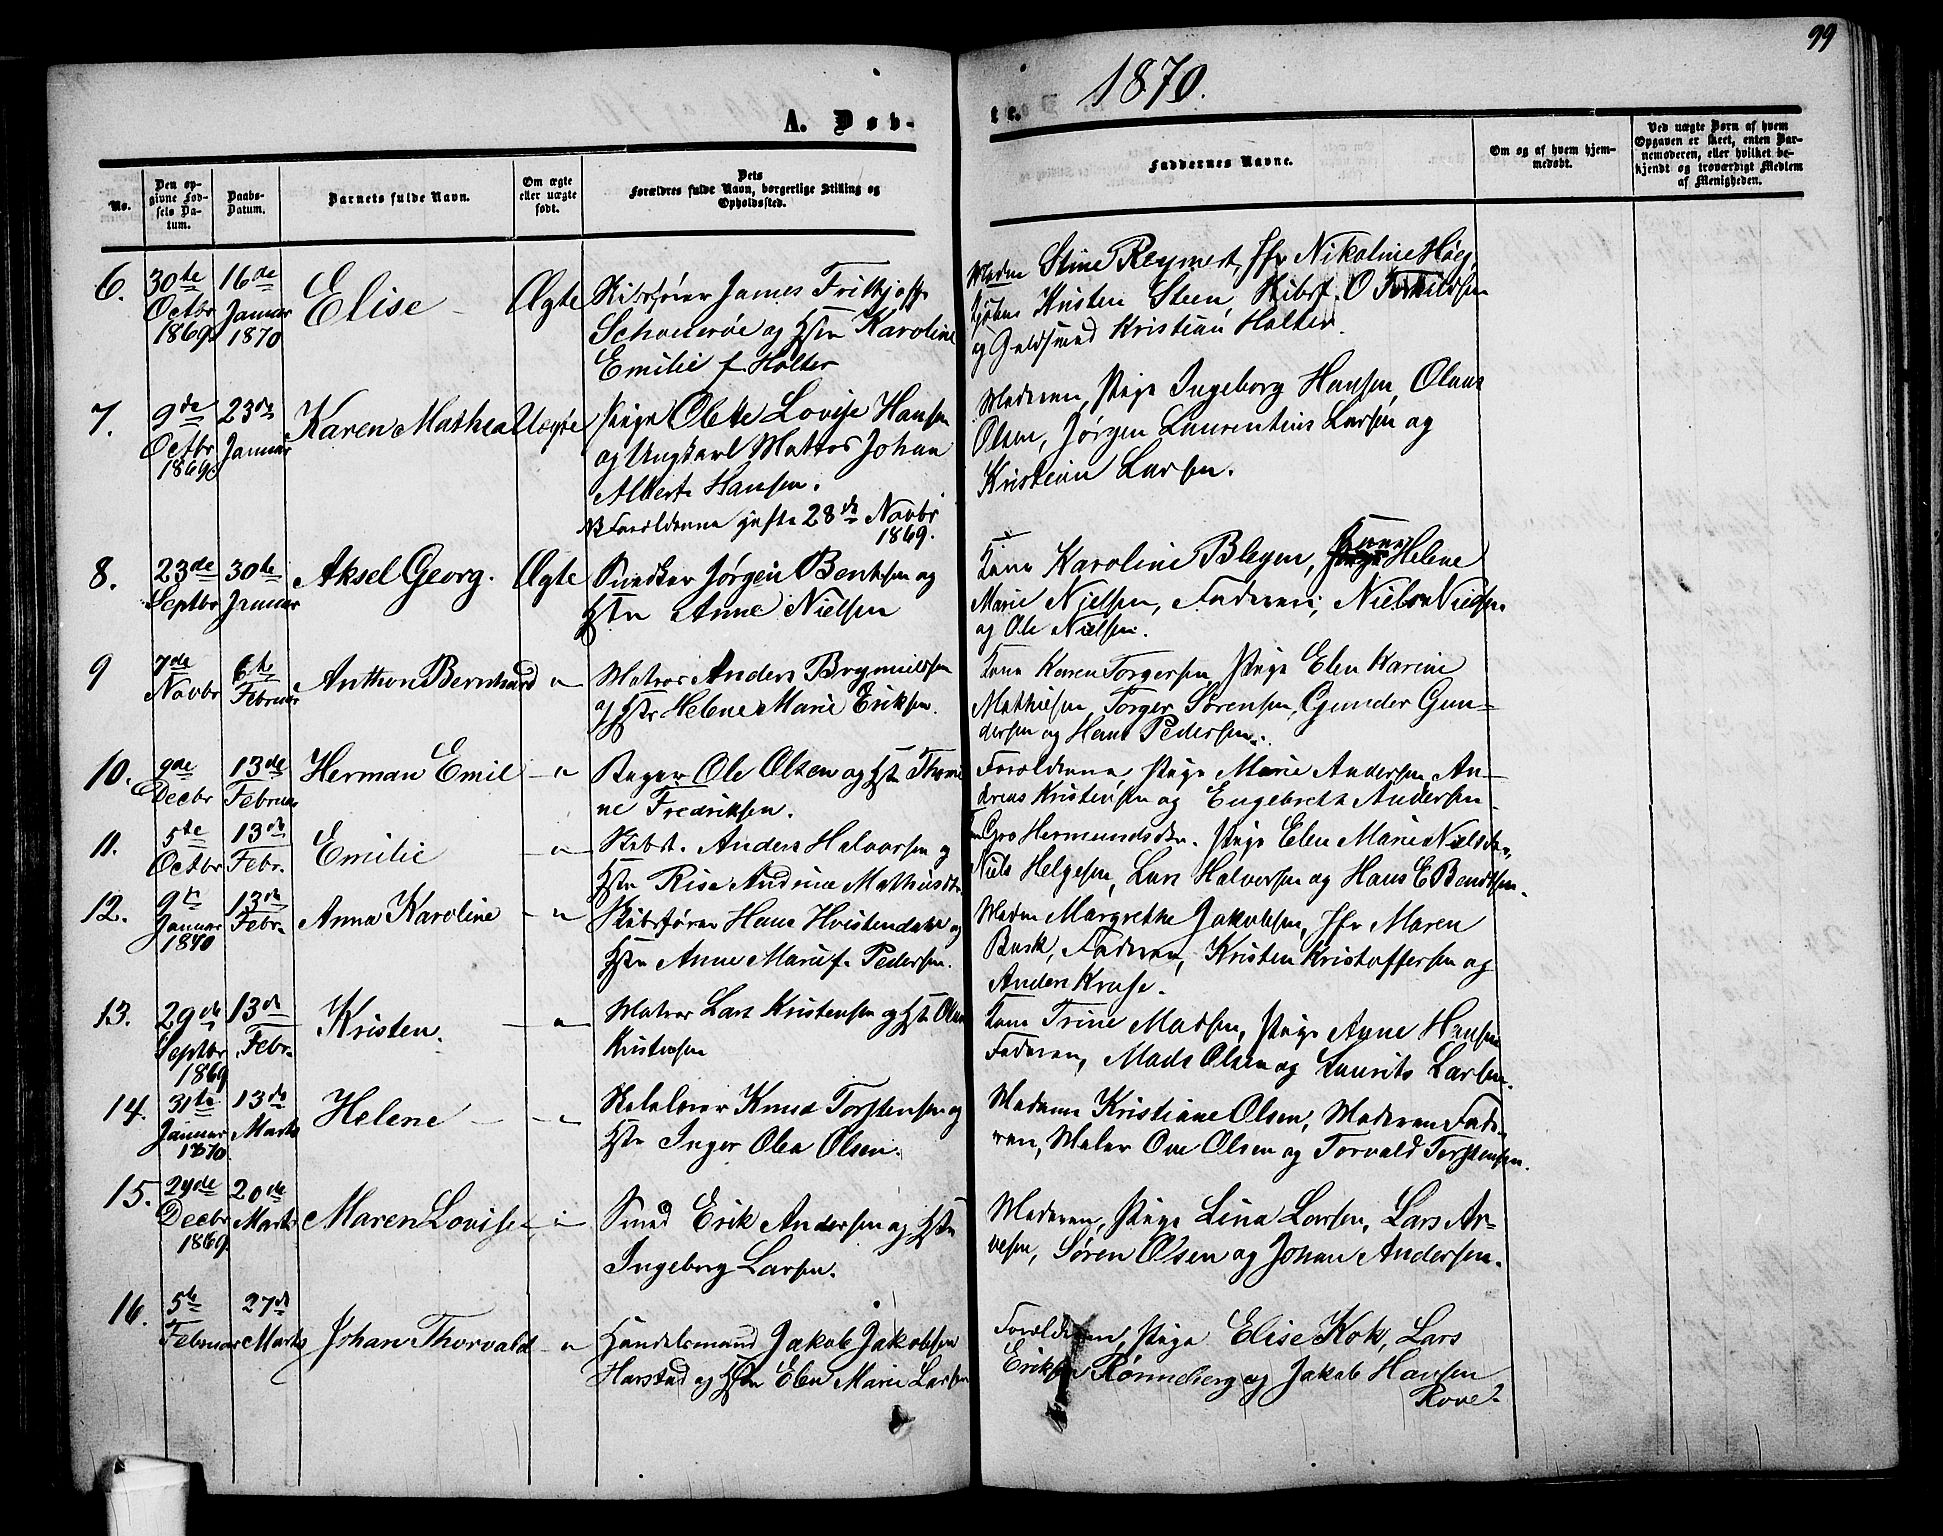 99
1870.
A. Døb-
te.
No.
Den op-
givne Fød-
sels Da-
tum.
Daabs-
Datum.
Barnets fulde Navn.
Om ægte
eller uægte
født.
Dets
Forældres fulde Navn, borgerlige Stilling og
Opholdssted.
Faddernes Navne.
Om og af hvem hjem-
medøbt.
Ved uægte Børn af hvem
Opgaven er skeet, enten Bar-
nemoderen, eller hvilket be-
kjendt og troværdigt Medlem
af Menigheden.
6.
30te
Octbr
1869
16de
Januar
1870
Elise
Ægte
Skibsfører James Frithjoff
og Hstr Karoline
Emilie f. Holter
Madm Stine Reymert, Jfr Nikoline Høeg,
Kristen Steen, Skibsf. O Terkildsen
og Guldsmed Kristian Holter.
7.
9de
Octbr
1869
23de
Januar
Karen Mathea
Uægte
Pige Olette Lovise Hansen
og Ungkarl Matros Johan
Albert Hansen.
NB Forældrene gifte 28de Novbr
1869.
Moderen, Pige Ingeborg Hansen, Olaus
Olsen, Jørgen Laurentius Larsen og
Kristian Larsen.
8.
23de
Septbr
30te
Januar
Aksel Georg.
Ægte
Snedker Jørgen Bentsen og
Hstr Anne Nielsen
Kone Karoline Blegen, Helene
Marie Nielsen, Faderen, Niels Nielsen
og Ole Nielsen.
9
7de
Novbr
6te
Februar
Anthon Bernhard
"
Matros Anders Brynildsen
og Hstr Helene Marie Eriksen.
Kone Karen Torgersen, Pige Elen Karine
Mathisen, Torger Sørensen, Gunder Gun-
dersen og Hans Pedersen.
10.
9de
Decbr
13de
Februar
Herman Emil
"
Bager Ole Olsen og Hstr Thomi
ne Fredriksen.
Forældrene, Pige Marie Andersen, An-
dreas Kristensen og Engebreth Andersen
11.
5te
Octbr
13de
Febr.
Emilie
"
Skibst. Anders Halvorsen og
Hstr Rise Andrine Mathisdtr
Gro Hermundsdtr. Pige Elen Marie Nielsdtr,
Niels Helgesen, Lars Halvorsen og Hans E Bendtsen.
12.
9de
Januar
1870
13de
Febr.
Anna Karoline
"
Skibsfører Hans Hvistendahl og
Hstr Anne Marie f. Pedersen.
Madm Margrethe Jakobsen, Jfr Maren
Busk, Faderen, Kristen Kristoffersen og
Anders Kruse.
13.
29de
Septbr
1869
13de
Febr.
Kristen.
"
Matros Lars Kristensen og Hstr
Kristensen
Kone Trine Madsen, Pige Anne Hansen
Faderen, Mads Olsen og Laurits Larsen.
14.
31te
Januar
1870
13de
Marts
Helene
"
Knud Torstensen og
Hstr Inger Olea Olsen.
Madame Kristiane Olsen, Moderen Fade-
ren, Maler Ove Olsen og Torvald Torstensen.
15.
29de
Decbr
1869
20de
Marts
Maren Lovise
"
Smed Erik Andersen og Hstr
Ingeborg Larsen.
Moderen, Pige Lina Larsen, Lars Ar-
vesen, Søren Olsen og Johan Andersen.
16.
5te
Februar
27de
Marts
Johan Thorvald
"
Handelsmand Jakob Jakobsen
Harstad og Hstr Elen Marie Larsen
Forældrene, Pige Elise Kok, Lars
Eriksen Rønneberg og Jakob Hansen
Rove?